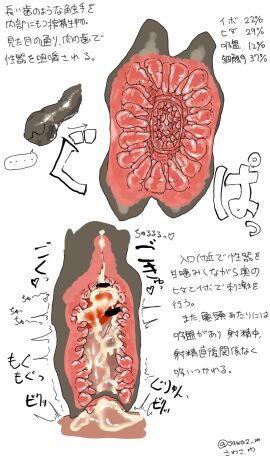 長い歯のような触手を
内部にもつ搾精生物。
見た目の通り、肉の歯で
性器を咀嚼される。
イボ 22%
ヒダ 29%
吸盤 12%
細触手 37%
ぐ
ぱっ
ちゅるるるっ♡
ごくっ♡
ごきゅっ♡
ちゅ〜
ちゅ〜
もぐ
もぐっ
ビクッ
ビクッ
入口付近で性器を
甘噛みしながら奥の
ヒダとイボで刺激を
行う。
また亀頭あたりには
吸盤があり射精中、
射精直後関係なく
吸いつかれる。
@sawaz_m
さわこめ